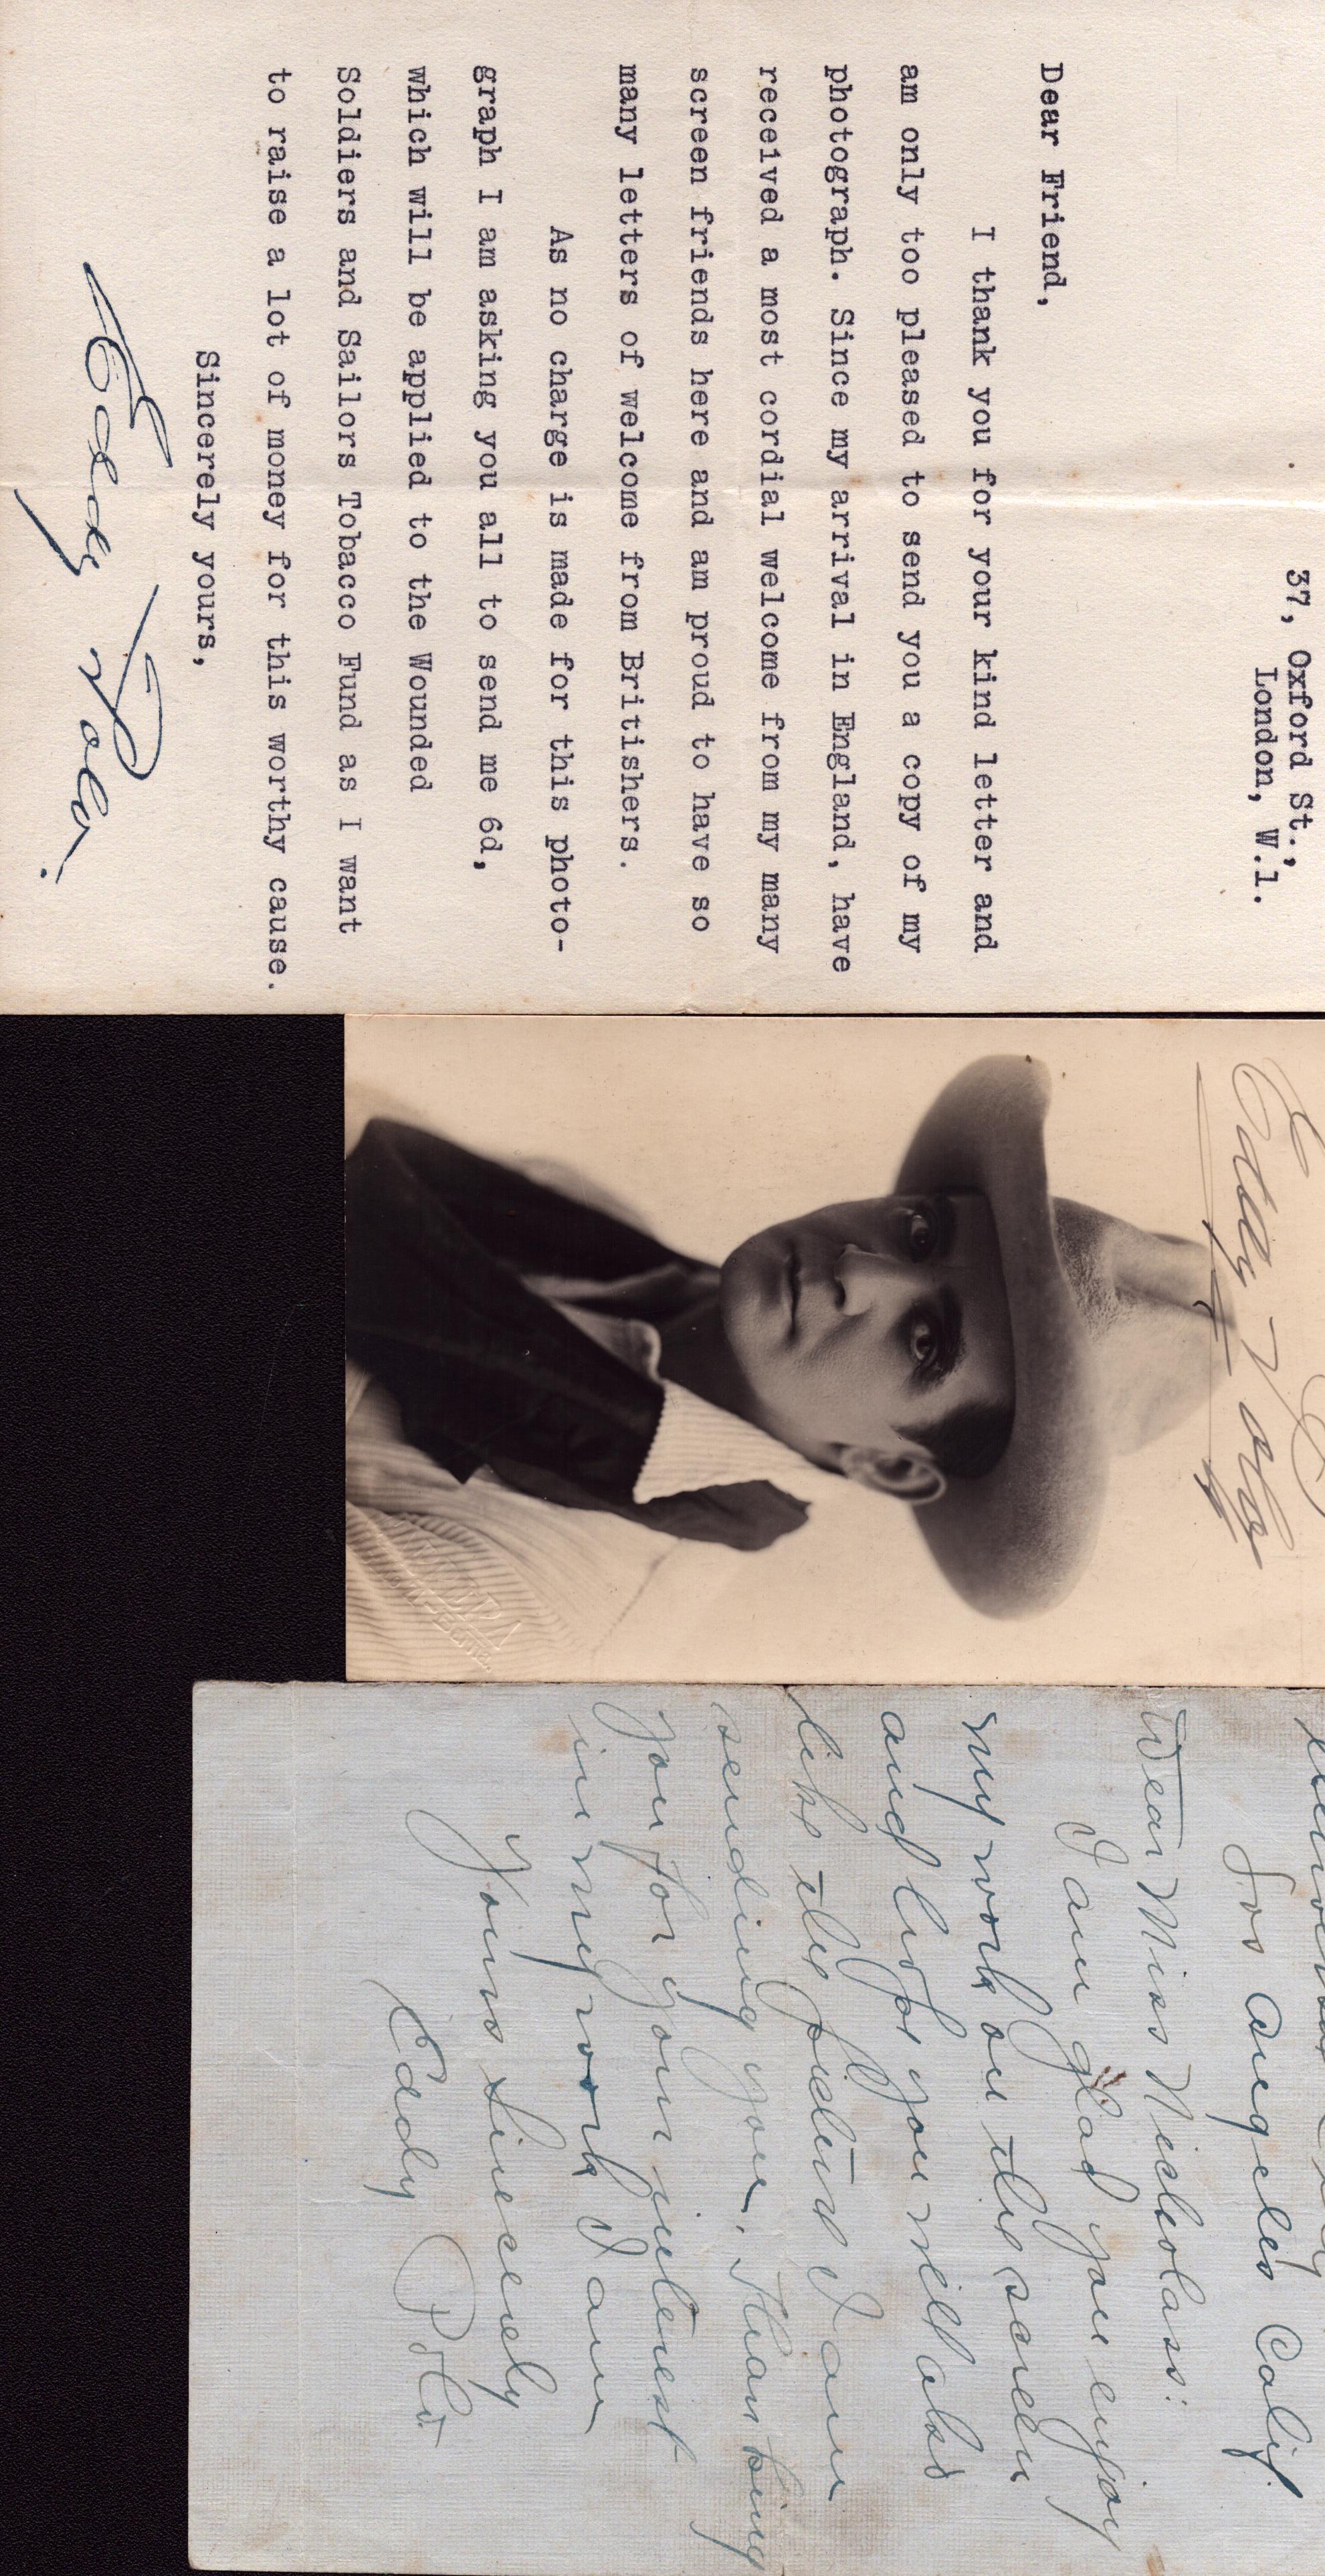 37, Oxford St.,
London, W.1.
Dear Friend,
I thank you for your kind letter and
am only too pleased to send you a copy of my
photograph. Since my arrival in England, have
received a most cordial welcome from my many
screen friends here and am proud to have so
many letters of welcome from Britishers.
As no charge is made for this photo-
graph I am asking you all to send me 6d,
which will be applied to the Wounded
Soldiers and Sailors Tobacco Fund as I want
to raise a lot of money for this worthy cause.
Sincerely yours,
Eddy Polo.
Eddy Polo
Los Angeles Calif.
Dear Miss Nicholass:
I am glad you enjoy
my work on the screen
and hope you will also
like the picture I am
sending you. Thanking
you for your interest
in my work I am
Yours Sincerely
Eddy Polo